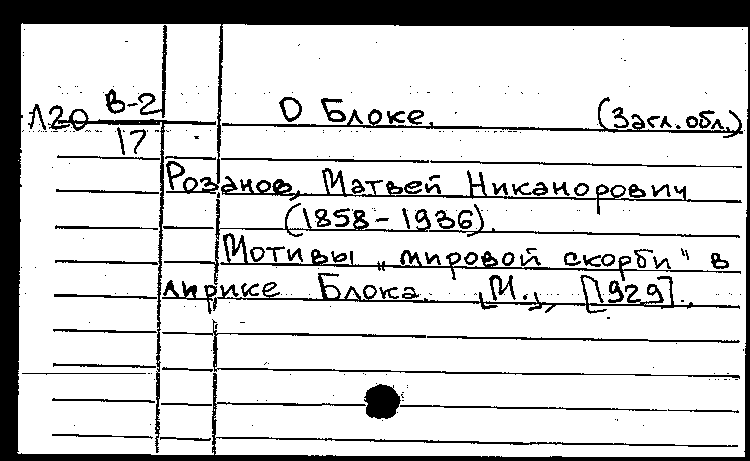 О Блоке. (Загл. обл.)
Л20 В-2
17
Розанов, Матвей Никанорович
(1858-1936).
Мотивы „мировой скорби" в
лирике Блока. [М.], [1929].